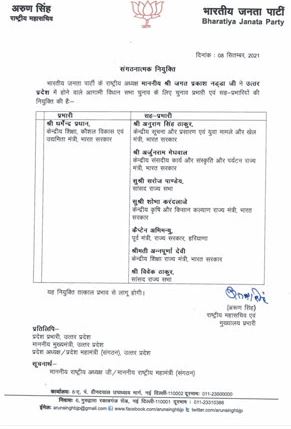 अरुण सिंह
राष्ट्रीय महासचिव
भारतीय जनता पार्टी
Bharatiya Janata Party
दिनांक : 08 सितम्बर, 2021
संगठनात्मक नियुक्ति
भारतीय जनता पार्टी के राष्ट्रीय अध्यक्ष माननीय श्री जगत प्रकाश नड्डा जी ने उत्तर
प्रदेश में होने वाले आगामी विधान सभा चुनाव के लिए चुनाव प्रभारी एवं सह-प्रभारियों की
नियुक्ति की है:-
प्रभारी
श्री धर्मेन्द्र प्रधान,
केन्द्रीय शिक्षा, कौशल विकास एवं
उद्यमिता मंत्री, भारत सरकार
सह-प्रभारी
श्री अनुराग सिंह ठाकुर,
केन्द्रीय सूचना और प्रसारण एवं युवा मामले और खेल
मंत्री, भारत सरकार
श्री अर्जुनराम मेघवाल
केन्द्रीय संसदीय कार्य और संस्कृति और पर्यटन राज्य
मंत्री, भारत सरकार
सुश्री सरोज पाण्डेय,
सांसद राज्य सभा
सुश्री शोभा करंदलाजे
केन्द्रीय कृषि और किसान कल्याण राज्य मंत्री, भारत
सरकार
कैप्टेन अभिमन्यु,
पूर्व मंत्री, राज्य सरकार, हरियाणा
श्रीमती अन्नपूर्णा देवी
केन्द्रीय शिक्षा राज्य मंत्री, भारत सरकार
श्री विवेक ठाकुर,
सांसद राज्य सभा
यह नियुक्ति तत्काल प्रभाव से लागू होगी।
(अरुण सिंह)
राष्ट्रीय महासचिव एवं
मुख्यालय प्रभारी
प्रतिलिपि-
प्रदेश प्रभारी, उत्तर प्रदेश
माननीय मुख्यमंत्री, उत्तर प्रदेश
प्रदेश अध्यक्ष / प्रदेश महामंत्री (संगठन), उत्तर प्रदेश
सूचनार्थ-
माननीय राष्ट्रीय अध्यक्ष जी / माननीय राष्ट्रीय महामंत्री (संगठन)
कार्यालय: 6-ए, पं. दीनदयाल उपाध्याय मार्ग, नई दिल्ली-110002 दूरभाष: 011-23500000
नई दिल्ली-110001 दूरभाष : 011-23310386
ईमेल: arunsinghbjp@gmail.com www.facebook.com/arunsinghbjp twitter.com/arunsinghbjp